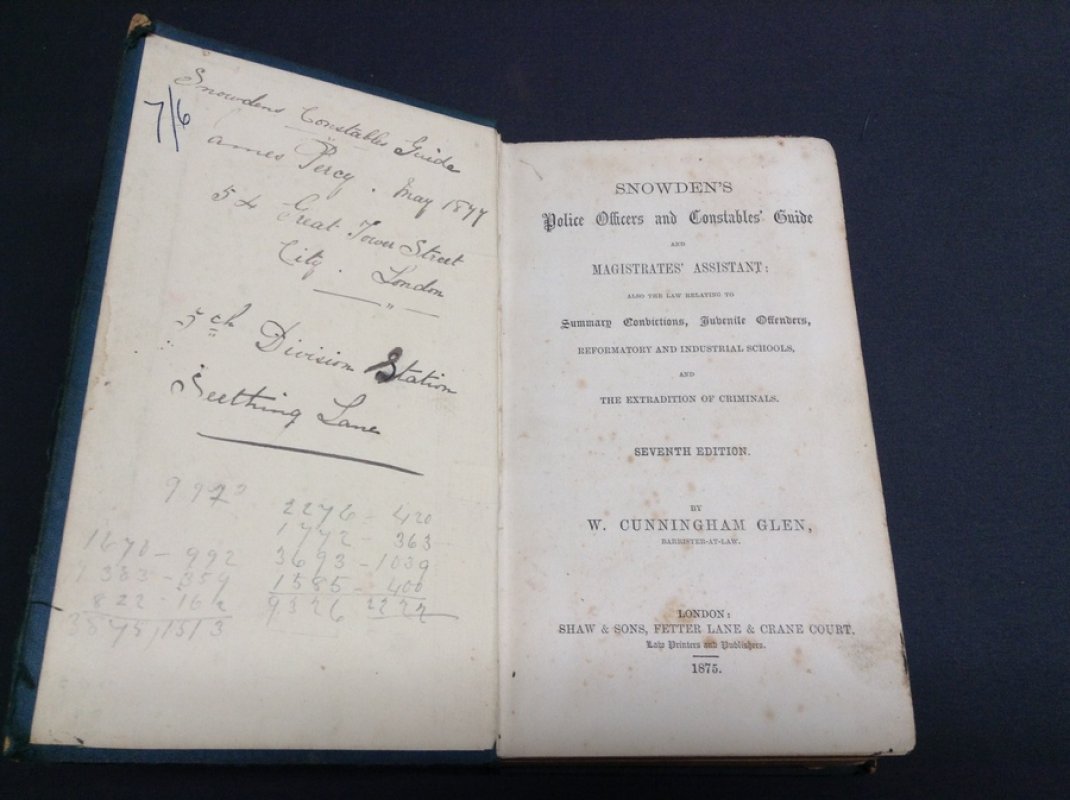 7/6
Snowdens Constables Guide
ames Percy. May 1877
54 Great Tower Street
City. London
"
5th Division Station
Seething Lane
992
2276 - 420
1772 - 363
1670 - 992
3693 - 1039
383 - 359
1585 - 400
822 - 162
9326 2222
SNOWDEN'S
Police Officers and Constables' Guide
AND
MAGISTRATES' ASSISTANT:
ALSO THE LAW RELATING TO
Summary Convictions, Juvenile Offenders,
REFORMATORY AND INDUSTRIAL SCHOOLS,
AND
THE EXTRADITION OF CRIMINALS.
SEVENTH EDITION.
BY
W. CUNNINGHAM GLEN,
BARRISTER-AT-LAW.
LONDON:
SHAW & SONS, FETTER LANE & CRANE COURT,
Law Printers and Publishers.
1875.